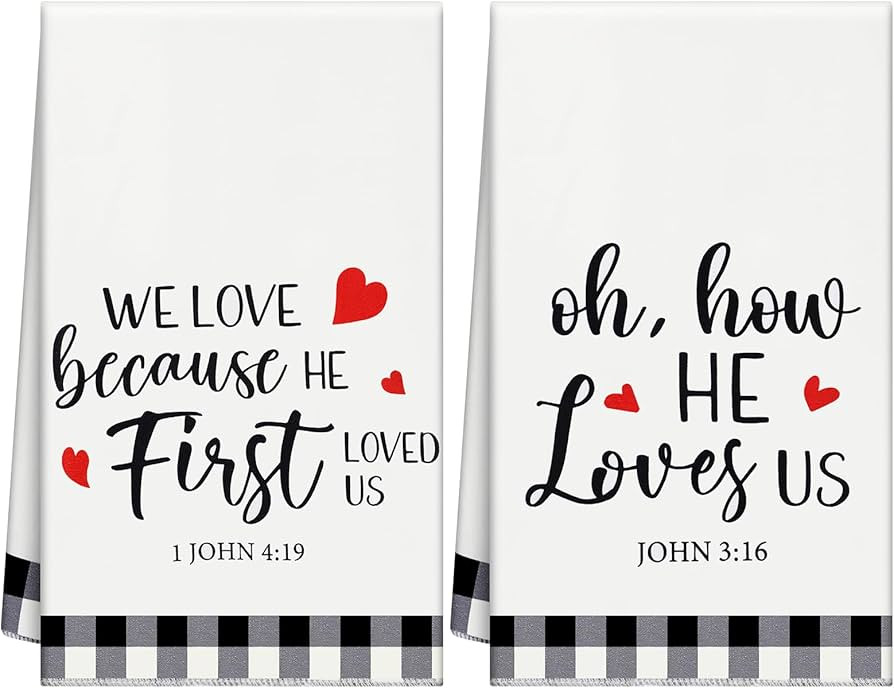 WE LOVE
because HE
First LOVED
US
1 JOHN 4:19
oh, how
HE
Loves US
JOHN 3:16